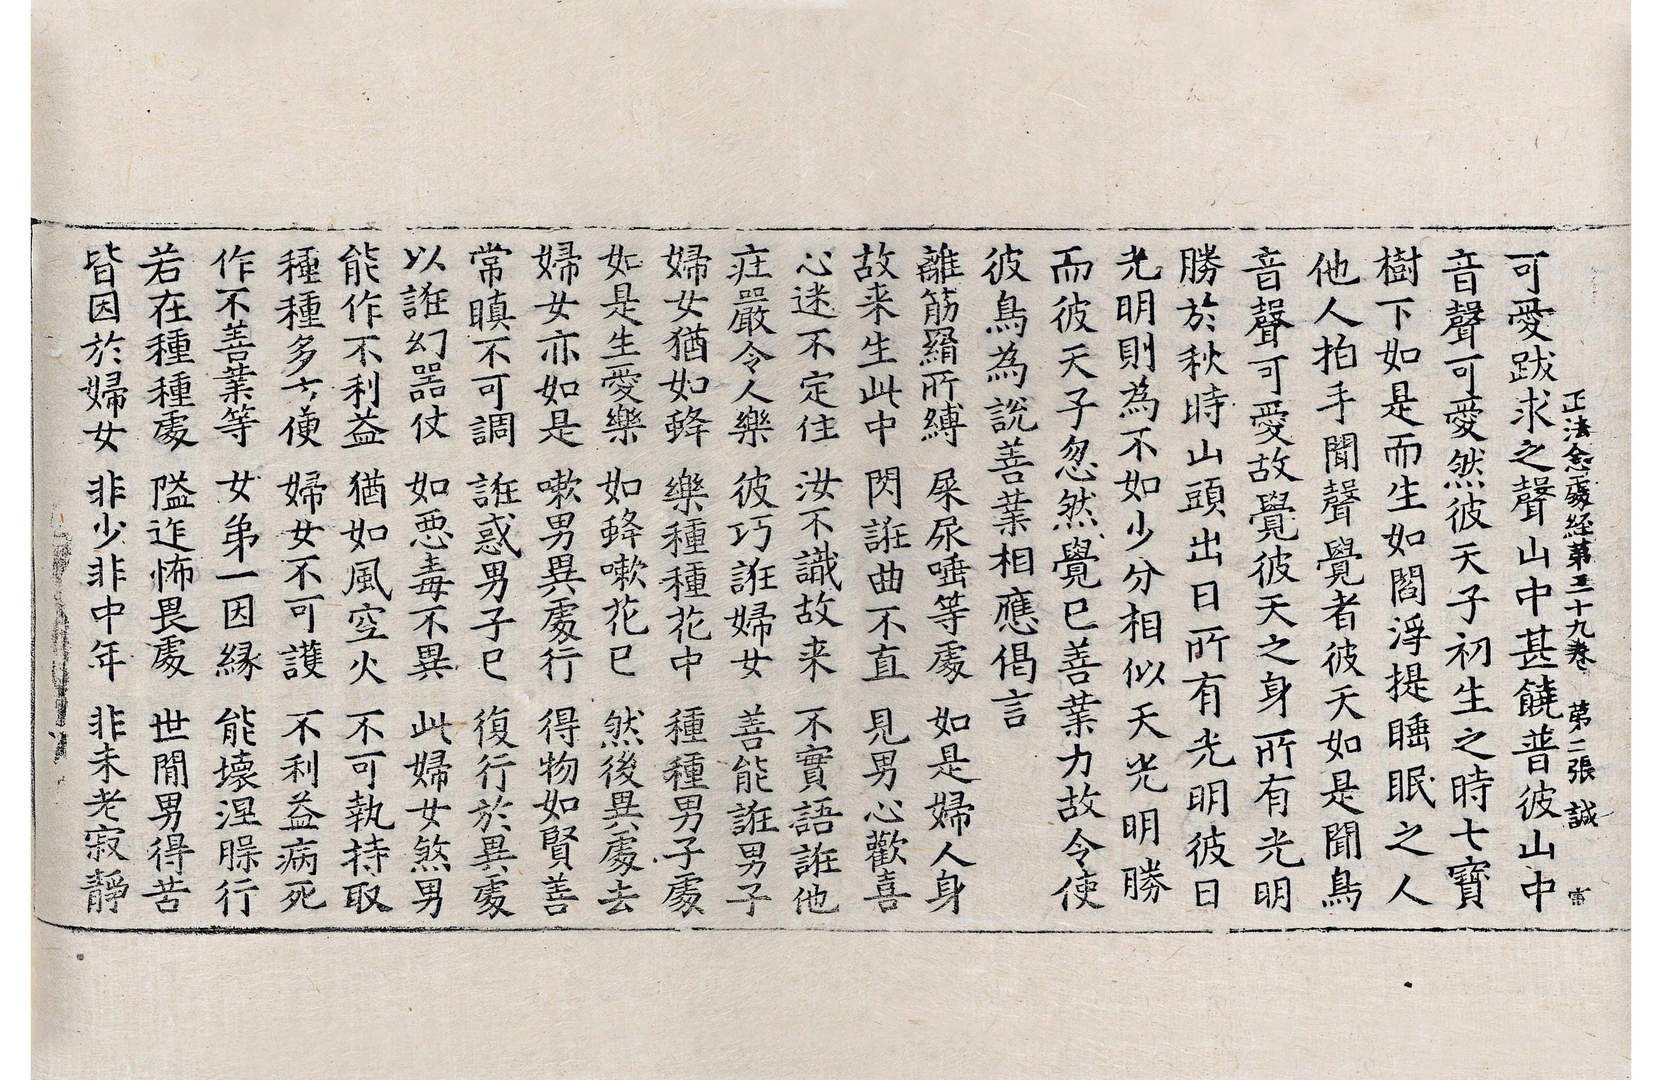 正法念處經第三十九卷　第二張　誠
可愛跋求之聲山中甚饒普彼山中
音聲可愛然彼天子初生之時七寶
樹下如是而生如閻浮提睡眠之人
他人拍手聞聲覺者彼天如是聞鳥
音聲可愛故覺彼天之身所有光明
勝於秋時山頭出日所有光明彼日
光明則為不如少分相似天光明勝
而彼天子忽然覺已善業力故令使
彼鳥為說善業相應偈言
離筋羂所縛　屎尿唾等處　如是婦人身
故来生此中　閃誑曲不直　見男心歡喜
心迷不定住　汝不識故来　不實語誑他
庄嚴令人樂　彼巧誑婦女　善能誑男子
婦女猶如蜂　樂種種花中　種種男子處
如是生愛樂　如蜂嗽花已　然後異處去
婦女亦如是　嗽男異處行　得物如賢善
常瞋不可調　誑惑男子已　復行於異處
以誑幻器仗　如惡毒不異　此婦女煞男
能作不利益　猶如風空火　不可執持取
種種多方便　婦女不可護　不利益病死
作不善業等　女弟一因緣　能壞涅槃行
若在種種處　隘迮怖畏處　世間男得苦
皆因於婦女　非少非中年　非未老寂靜